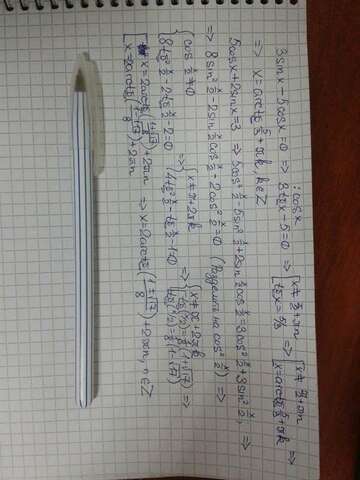 3sinx-5cosx=0 |:cosx => 3tgx-5=0 => [x≠π/2+πn tgx=5/3 => [x≠π/2+πn x=arctg 5/3+πk =>
=> x=arctg 5/3+πk, k∈Z
5cosx+2sinx=3 => 5cos² x/2-5sin² x/2+2sin x/2 cos x/2=3cos² x/2+3sin² x/2 =>
=> 8sin² x/2-2sin x/2 cos x/2-2cos² x/2=0 (Разделить на cos² x/2) =>
{cos x/2≠0 8tg² x/2-2tg x/2-2=0 => {x≠π+2πk 4tg² x/2-tg x/2-1=0 => {x≠π+2πk [tg(x/2)=1/8(1+√17) tg(x/2)=1/8(1-√17) =>
[x=2arctg(1+√17/8)+2πn x=2arctg(1-√17/8)+2πn => x=2arctg(1±√17/8)+2πn, n∈Z